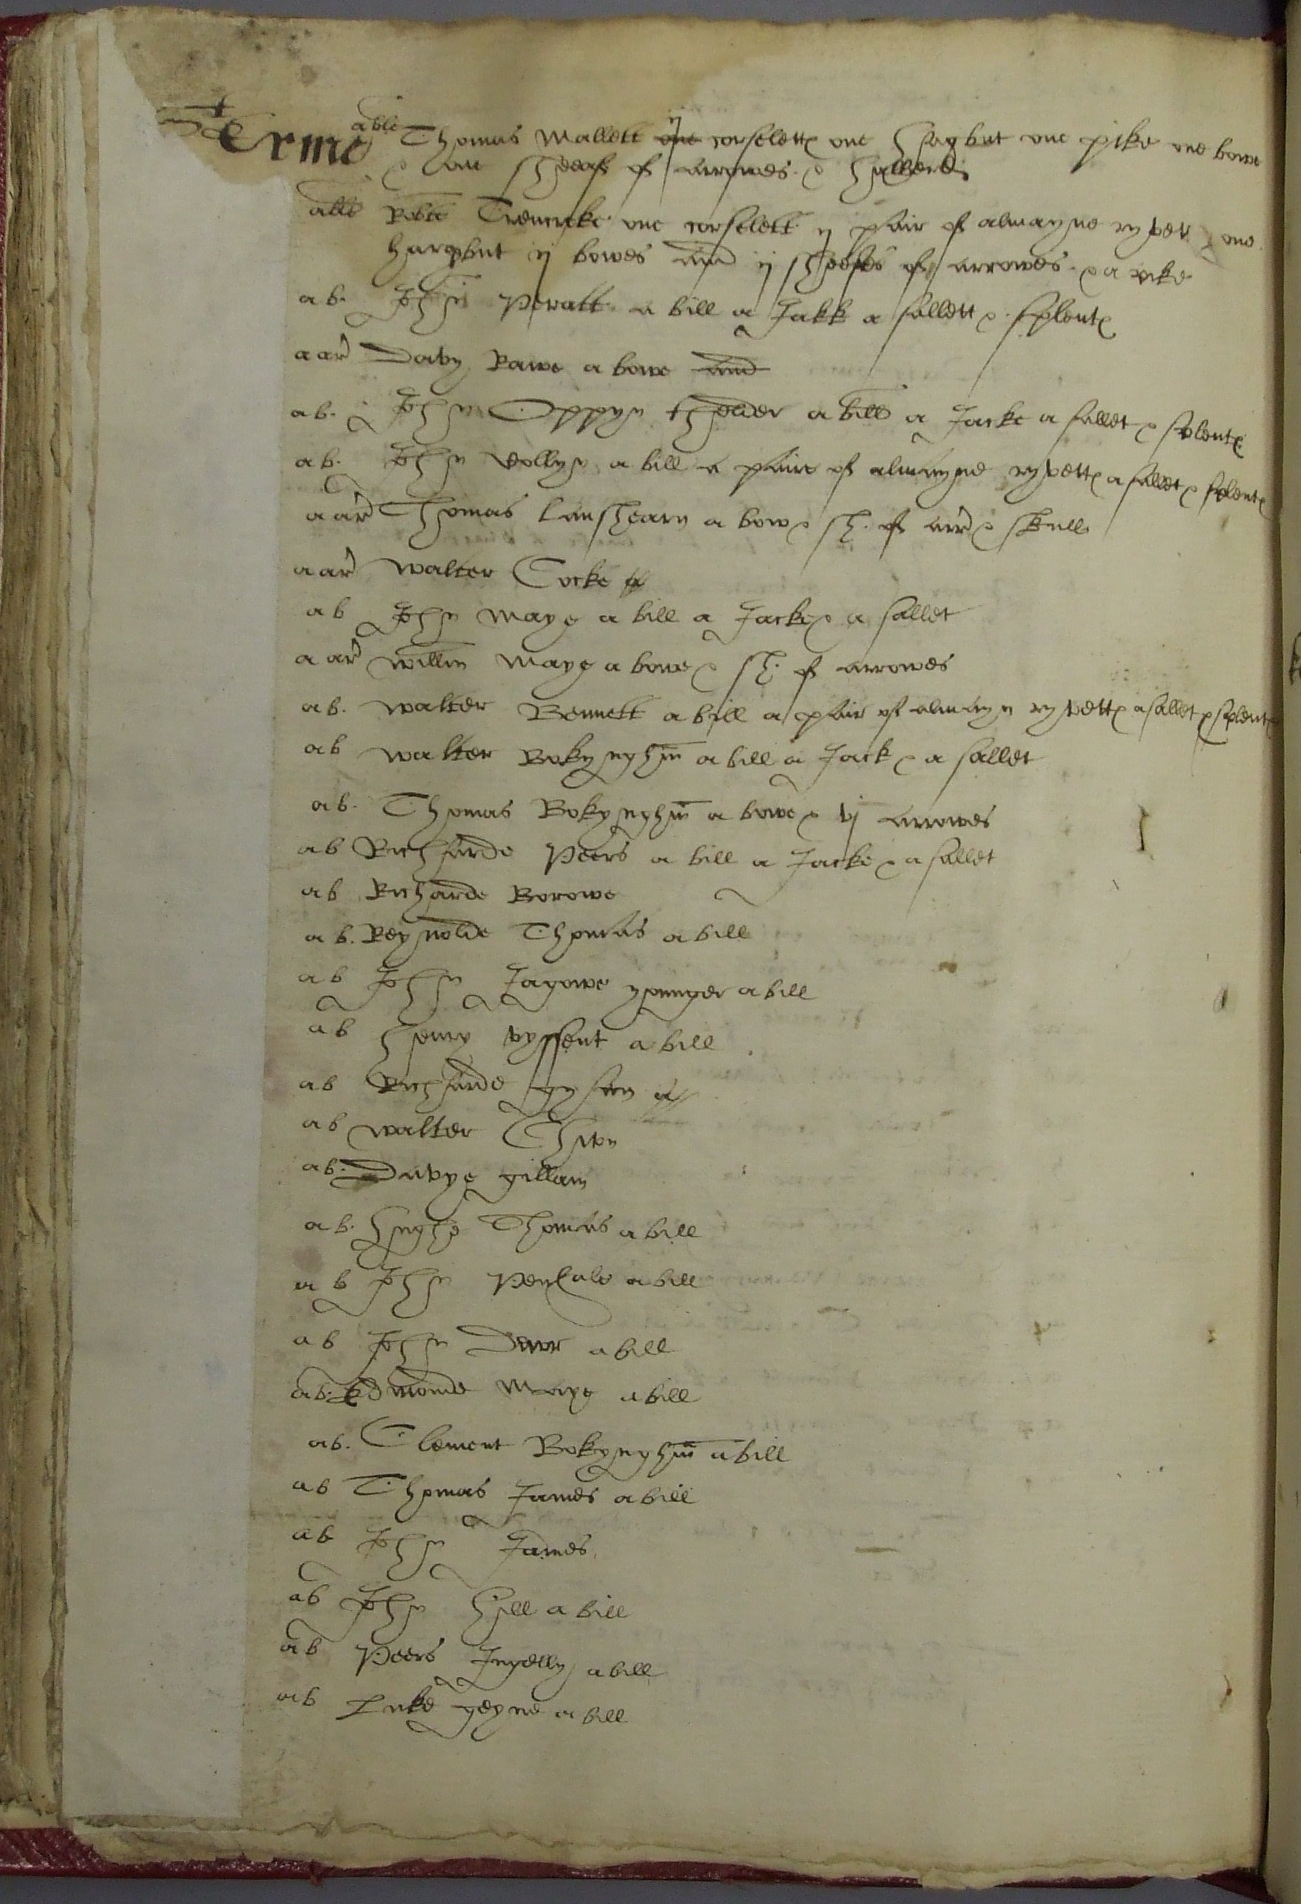 St Erme able Thomas Mallett one ij corselettes one hagbut one pike one bowe
& one sheeaf of arrowes & halberd
able Robt Trencreke one corselett ij pair of almayne ryvett & one
hargbut ij bowes and ij sheefes of arrowes & a pike
ab. John Peratt a bill a Jakk a sallett & splentes
aar Davy Rawe a bowe and
ab. John Oppyn thelder a bill a Jacke a sallet & splentes
ab. John vollyn a bill a paire of almayne ryvettes a sallet & splentes
aar Thomas Lanshearn a bow & sh. of arr & skull
aar Walter Cocke
ab John Maye a bill a Jacke & a sallet
aar Willm Maye a bowe & sh. of arrowes
ab. Walter Bennett a bill a pair of almayn ryvettes a sallet & splentes
ab Walter Bokynghm a bill a Jack & a sallet
ab. Thomas Bokynghm a bowe & vj arrowes
ab Richarde Peers a bill a Jacke & a sallet
ab Richarde Borowe
ab. Reynolde Thomas a bill
ab John Jagowe younger a bill
ab Henry vyssent a bill
ab Richarde
ab Walter
ab. Davye gillam
ab. Hughe Thomas a bill
ab John Penhale a bill
ab John Dewr a bill
ab. Edmonde Maye a bill
ab. Clement Bokynghm a bill
ab Thomas James a bill
ab John James
ab John Hill a bill
ab Peers Jngelly a bill
ab Luke geyne a bill